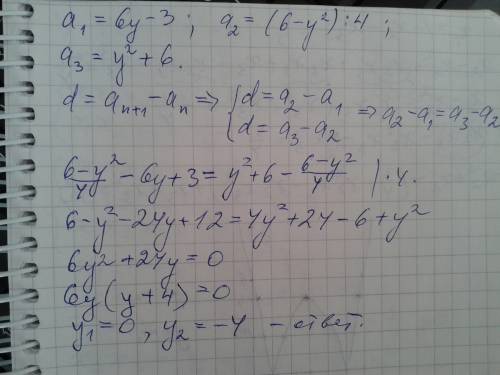 a₁ = 6y - 3 ; a₂ = (6 - y²) : 4 ;
a₃ = y² + 6.
d = aₙ₊₁ - aₙ ⇒ { d = a₂ - a₁ ⇒ a₂ - a₁ = a₃ - a₂
d = a₃ - a₂
(6 - y²)/4 - 6y + 3 = y² + 6 - (6 - y²)/4 | · 4.
6 - y² - 24y + 12 = 4y² + 24 - 6 + y²
6y² + 24y = 0
6y (y + 4) = 0
y₁ = 0 , y₂ = -4 - ответ.